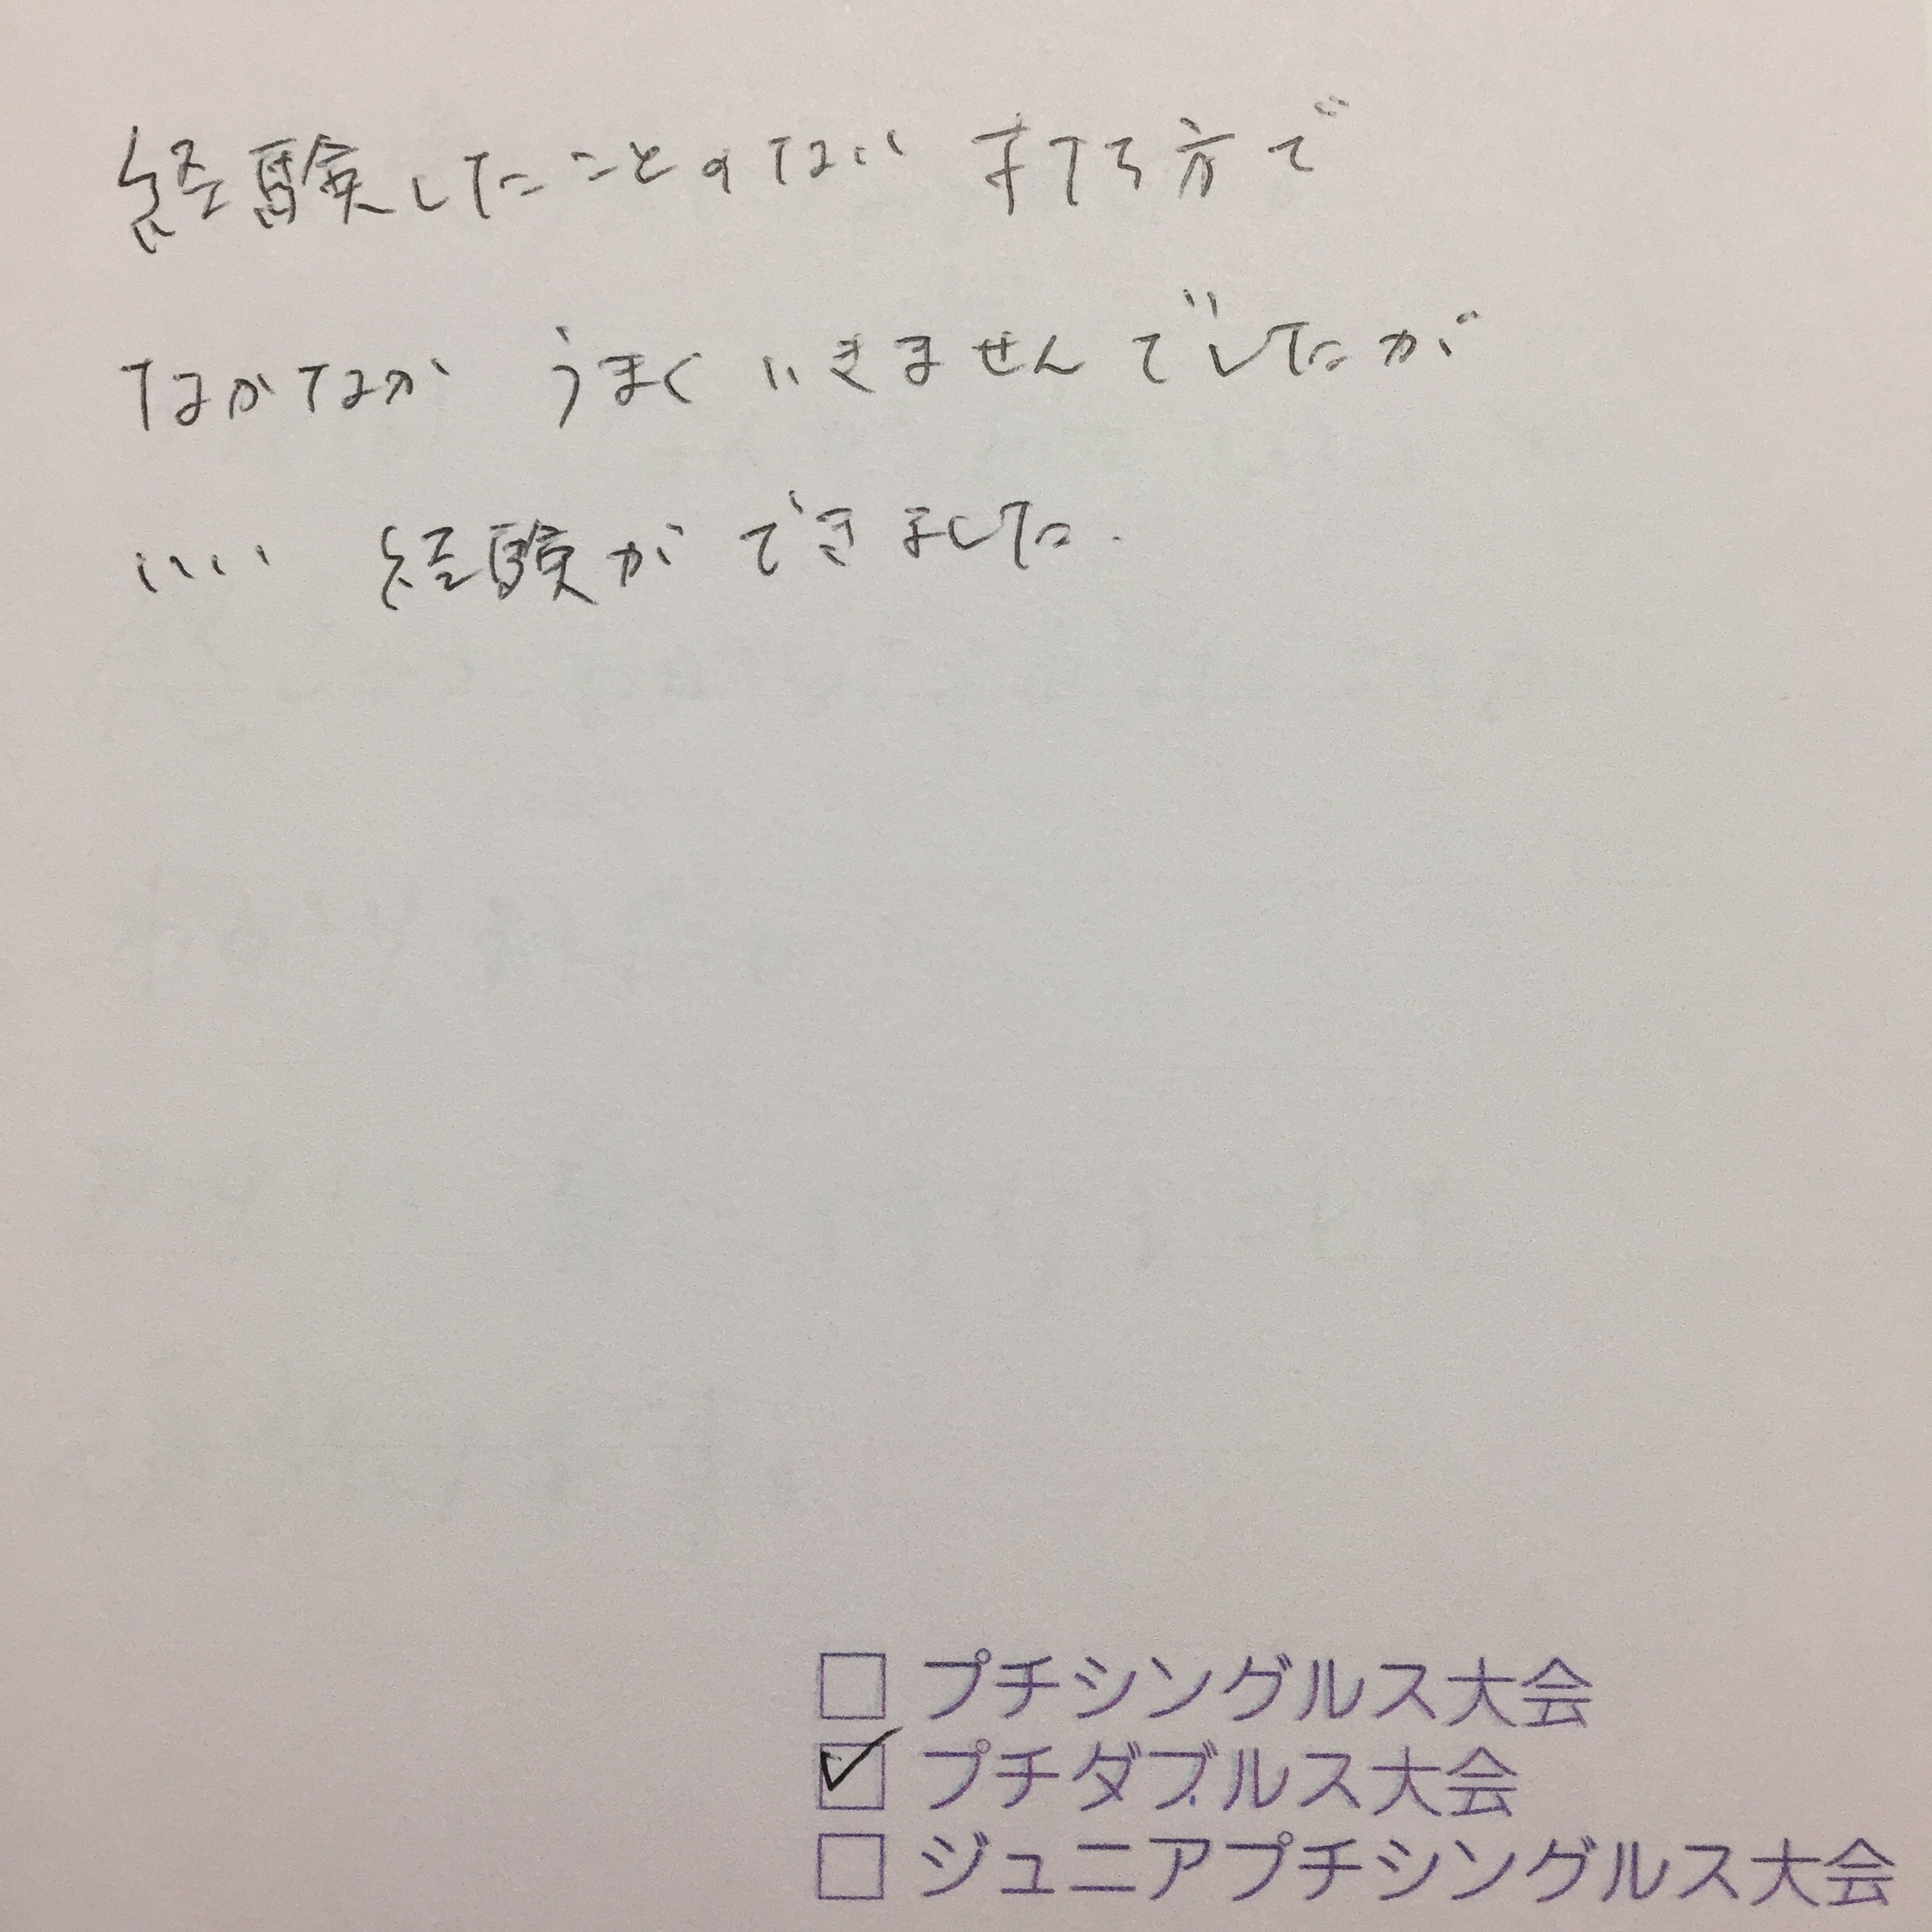 経験したことのない打ち方で
なかなか うまく いきませんでしたが
いい 経験ができました.
□ プチシングルス大会
☑ プチダブルス大会
□ ジュニアプチシングルス大会